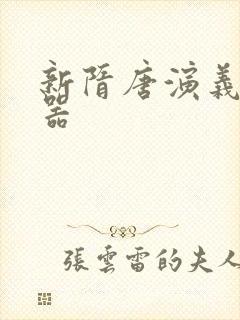 新隋唐演義
器
張雲雷的夫人